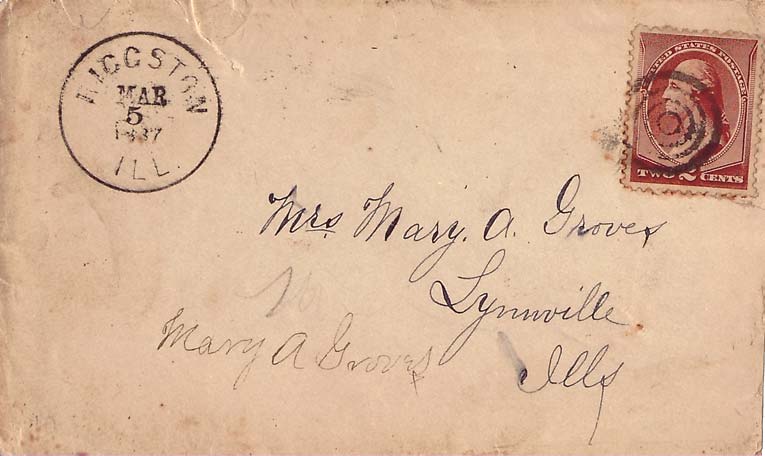 RIGGSTON
MAR
5
1887
ILL.
UNITED STATES POSTAGE
TWO 2 CENTS
Mrs Mary. A. Groves
Lynnville
Ills
Mary A Groves